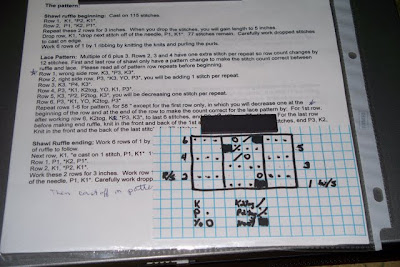 The pattern
Shawl ruffle beginning: Cast on 115 stitches.
Row 1, K1, *P1, K1*
Row 2, P1, *P2, P1*.
Repeat these 2 rows for 3 inches. When you drop the stitches, you will gain length to 5 inches.
Drop row, K1, *drop next stitch off of the needle, P1, K1*. 77 stitches remain. Carefully work dropped stitches
to cast on edge.
Work 6 rows of 1 by 1 ribbing by knitting the knits and purling the purls.
Lace Pattern: Multiple of 6 plus 3. Rows 2, 3 and 4 have one extra stitch per repeat so row count changes by
those stitches. First and last row of shawl only have a pattern change to make the stitch count correct between
ruffle and lace. Please read all of pattern row repeats before beginning.
Row 1, wrong side row, K3, *P3, K3*
Row 2, right side row, P3, *K3, YO, P3*, you will be adding 1 stitch per repeat.
Row 3, K3, *P4, K3*
Row 4, P3, *K1, K2tog, YO, K1, P3*.
Row 5, K3, *P2, P2tog, K3*, you will be decreasing one stitch per repeat.
Row 6, P3, *K1, YO, K2tog, P3*
Repeat rows 1-6 for pattern, for 58 " except for the first row only, in which you will decrease one at the
beginning of the row and at the end of the row to make the count correct for the lace pattern by: For 1st row
after working row 6, K2tog, K2, *P3, K3*, to last 8 stitches, en
before making end ruffle, knit in front and back of the 1st
Knit in the front and the back of the last stitc
For the last row
stitches, end P3, K2,
Shawl Ruffle ending: Work 6 rows of 1 by
of ruffle to follow.
Next row, K1, *e cast on 1 stitch, P1, K1*
Row 1, P1, *K2, P1*.
Row 2, K1, *P2, K1*.
Work these 2 rows for 3 inches. Work row 1
of the needle, P1, K1*. Carefully work dropp
Then cast off in patte
6
4
2
R/S
5
3
1 W/S
K
P
Y/O O
K2tog /
P2tog